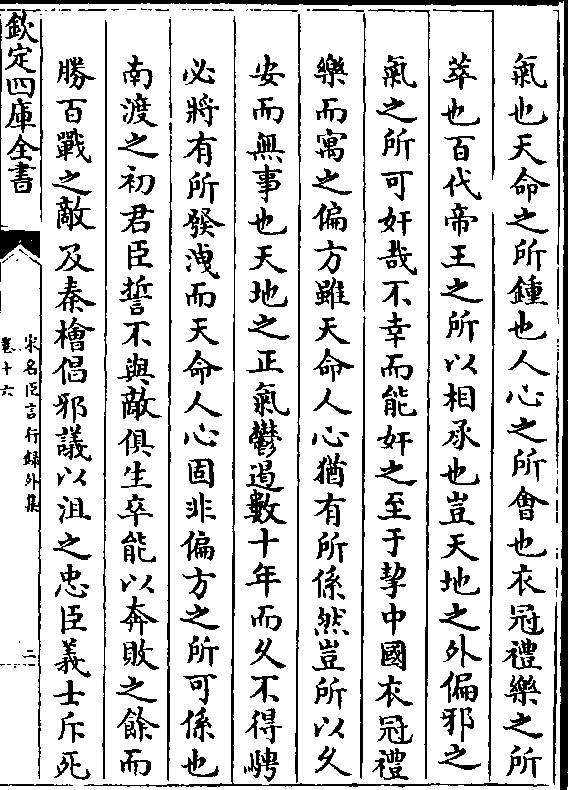 氣也天命之所鍾也人心之所會也衣冠禮樂之所
萃也百代帝王之所以相承也豈天地之外偏邪之
氣之所可奸哉不幸而能奸之至于挈中國衣冠禮
樂而寓之偏方雖天命人心猶有所係然豈所以久
安而無事也天地之正氣鬱遏數十年而久不得騁
必將有所發洩而天命人心固非偏方之所可係也
南渡之初君臣誓不與敵俱生卒能以奔敗之餘而
勝百戰之敵及秦檜倡邪議以沮之忠臣義士斥死
欽定四庫全書
宋名臣言行録外集
卷十六
二